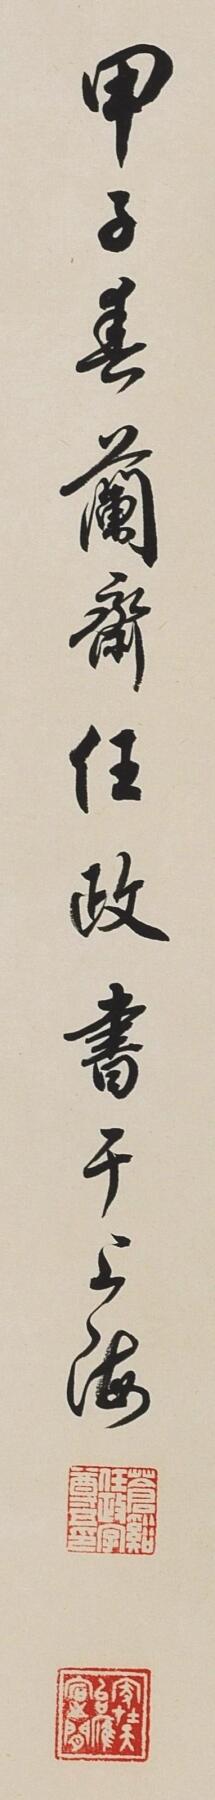 甲子春蘭齋任政書于上海